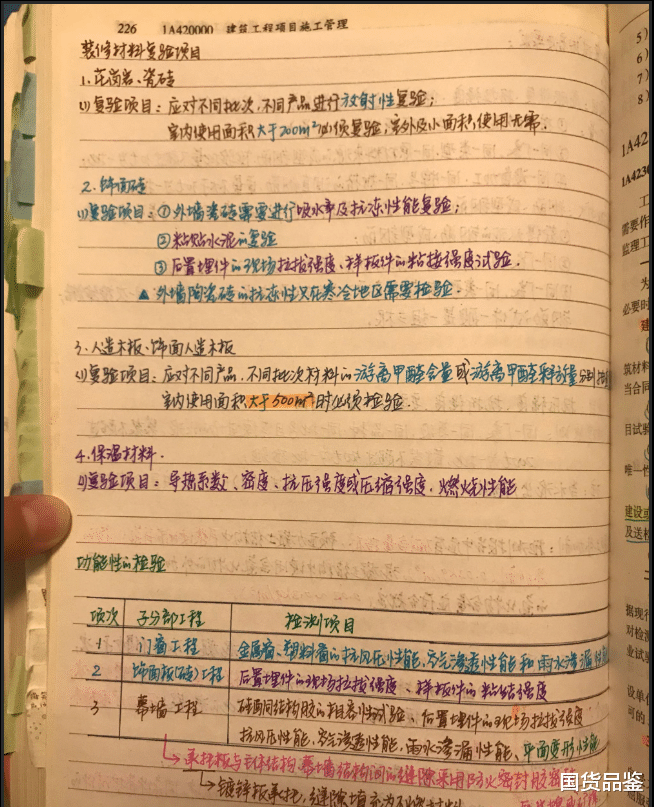 226 1A420000 建筑工程项目施工管理
装修材料复验项目
1.花岗岩、瓷砖
(1)复验项目：应对不同批次,不同产品进行放射性复验；
室内使用面积大于200m²必须复验,室外及小面积使用无需.
2.饰面砖
(1)复验项目：①外墙瓷砖需要进行吸水率及抗冻性能复验；
②粘贴水泥的复验
③后置埋件的现场拉拔强度、样板件的粘接强度试验.
▲外墙陶瓷砖的抗冻性只在寒冷地区需要检验.
3.人造木板、饰面人造木板
(1)复验项目：应对不同产品,不同批次材料的游离甲醛含量或游离甲醛释放量分别
室内使用面积大于500m²时必须检验
4.保温材料.
(1)复验项目：导热系数、密度、抗压强度或压缩强度,燃烧性能
功能性的检验
项次 子分部工程 检测项目
1 门窗工程 金属窗、塑料窗的抗风压性能、空气渗透性能和雨水渗漏性能
2 饰面板(砖)工程 后置埋件的现场拉拔强度、样板件的粘结强度
3 幕墙工程 硅酮结构胶的相容性试验、后置埋件的现场拉拔强度
抗风压性能、空气渗透性能,雨水渗漏性能、平面变形性能
承托板与主体结构、幕墙结构间的缝隙采用防火密封胶密
镀锌板承托,缝隙填充
5)
6)
7)
8)
1A4
1A4230
工
需要作
监理工
为
必要时
建
筑材料
当合同
目试验
唯一性
建设或
及送检
据现行
对检测
业试验
设单位
可的
国货品鉴